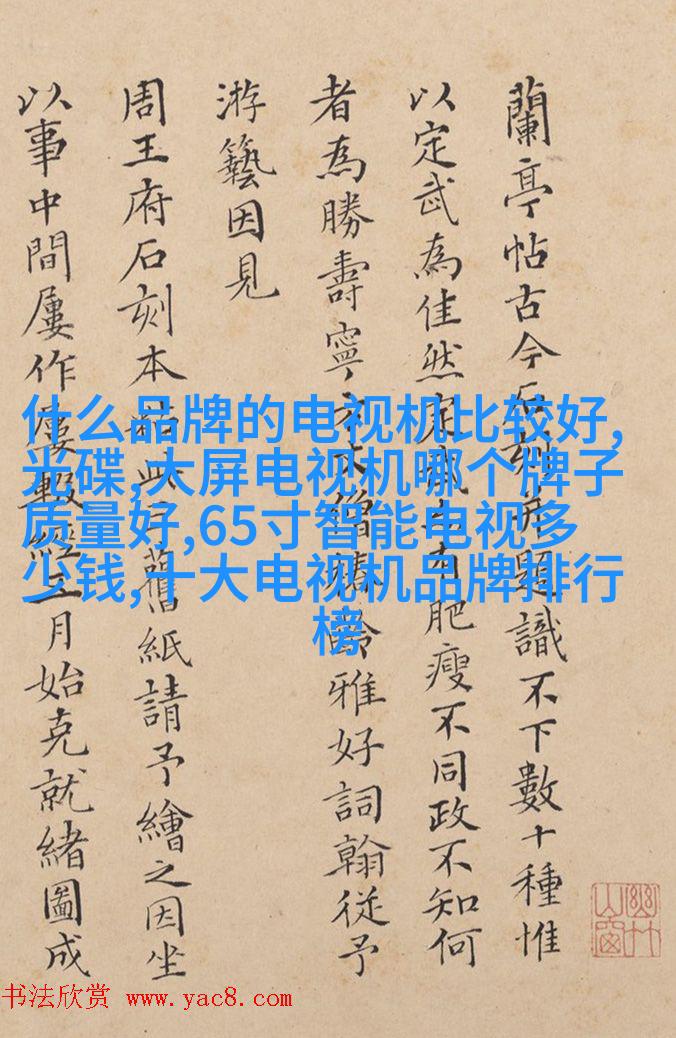 蘭亭帖古今石刻并題識不下數十種惟
以定武為佳然定武亦有肥瘦不同政不知何
者為勝壽寧僧齡雅好詞翰從予
游藝因見
周王府石刻本此舊紙請予繪之因坐
以事中間屢作屢輟經三月始克就緒圖成
什么品牌的电视机比较好,
光碟,大屏电视机哪个牌子
质量好,65寸智能电视多
少钱,十大电视机品牌排行
榜
幽竹山窗
书法欣赏 www.yac8.com